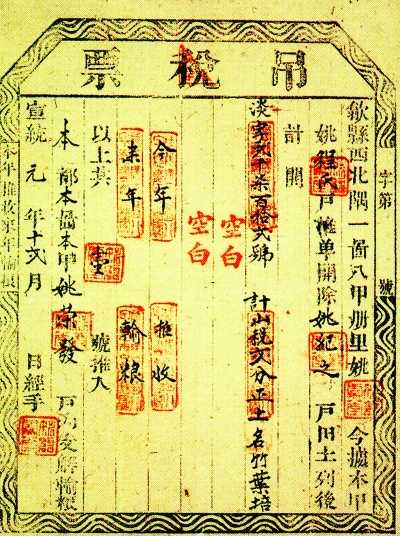 吊税票
歙縣西北隅一啚八甲册里姚 今據本甲
姚程氏戶推单開除姚 之 戶田土列後
計開
淡字 千柒百拾弍號 計山税 分正土名竹葉培
空白
空白
今年 推收
来年 輸粮
以上共 壹 號推入
本都本啚本甲姚荣發 戶 輸粮
宣統元年十弍月 日經手
字第 號
本年推收来年輸粮